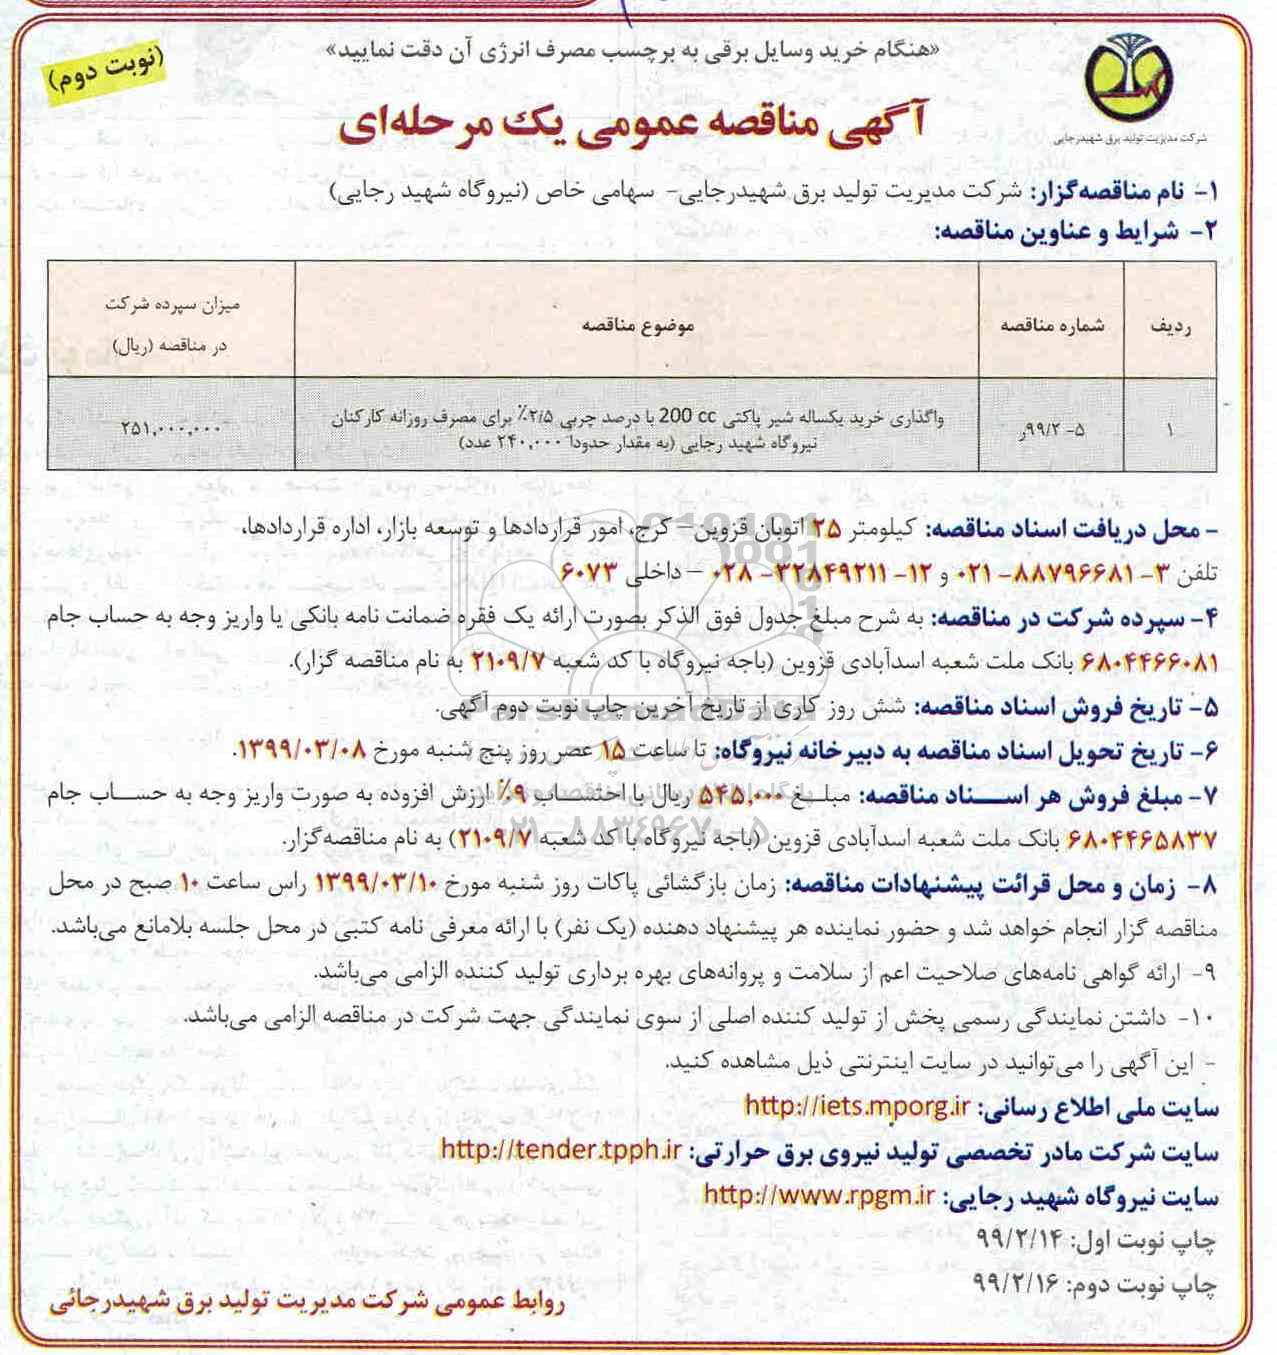 «هنگام خرید وسایل برقی به برچسب مصرف انرژی آن دقت نمایید»
(نوبت دوم)
شرکت مدیریت تولید برق شهیدرجایی
آگهی مناقصه عمومی یک مرحله‌ای
۱- نام مناقصه‌گزار: شرکت مدیریت تولید برق شهیدرجایی- سهامی خاص (نیروگاه شهید رجایی)
۲- شرایط و عناوین مناقصه:
ردیف شماره مناقصه موضوع مناقصه میزان سپرده شرکت
در مناقصه (ریال)
۱ ۵- ۹۹/۲ر واگذاری خرید یکساله شیر پاکتی 200 cc با درصد چربی ۲/۵٪ برای مصرف روزانه کارکنان ۲۵۱,۰۰۰,۰۰۰
نیروگاه شهید رجایی (به مقدار حدودا ۲۴۰,۰۰۰ عدد)
- محل دریافت اسناد مناقصه: کیلومتر ۲۵ اتوبان قزوین – کرج، امور قراردادها و توسعه بازار، اداره قراردادها،
تلفن ۳- ۸۸۷۹۶۶۸۱- ۰۲۱ و ۱۲- ۳۲۸۴۹۲۱۱- ۰۲۸ – داخلی ۶۰۷۳
۴- سپرده شرکت در مناقصه: به شرح مبلغ جدول فوق الذکر بصورت ارائه یک فقره ضمانت نامه بانکی یا واریز وجه به حساب جام
۶۸۰۴۴۶۶۰۸۱ بانک ملت شعبه اسدآبادی قزوین (باجه نیروگاه با کد شعبه ۲۱۰۹/۷ به نام مناقصه گزار).
۵- تاریخ فروش اسناد مناقصه: شش روز کاری از تاریخ آخرین چاپ نوبت دوم آگهی.
۶- تاریخ تحویل اسناد مناقصه به دبیرخانه نیروگاه: تا ساعت ۱۵ عصر روز پنج شنبه مورخ ۱۳۹۹/۰۳/۰۸.
۷- مبلغ فروش هر اسـناد مناقصه: مبلـغ ۵۴۵,۰۰۰ ریال با احتساب ۹٪ ارزش افزوده به صورت واریز وجه به حسـاب جام
۶۸۰۴۴۶۵۸۳۷ بانک ملت شعبه اسدآبادی قزوین (باجه نیروگاه با کد شعبه ۲۱۰۹/۷) به نام مناقصه‌گزار.
۸- زمان و محل قرائت پیشنهادات مناقصه: زمان بازگشائی پاکات روز شنبه مورخ ۱۳۹۹/۰۳/۱۰ راس ساعت ۱۰ صبح در محل
مناقصه گزار انجام خواهد شد و حضور نماینده هر پیشنهاد دهنده (یک نفر) با ارائه معرفی نامه کتبی در محل جلسه بلامانع می‌باشد.
۹- ارائه گواهی نامه‌های صلاحیت اعم از سلامت و پروانه‌های بهره برداری تولید کننده الزامی می‌باشد.
۱۰- داشتن نمایندگی رسمی پخش از تولید کننده اصلی از سوی نمایندگی جهت شرکت در مناقصه الزامی می‌باشد.
- این آگهی را می‌توانید در سایت اینترنتی ذیل مشاهده کنید.
سایت ملی اطلاع رسانی: http://iets.mporg.ir
سایت شرکت مادر تخصصی تولید نیروی برق حرارتی: http://tender.tpph.ir
سایت نیروگاه شهید رجایی: http://www.rpgm.ir
چاپ نوبت اول: ۹۹/۲/۱۴
چاپ نوبت دوم: ۹۹/۲/۱۶
روابط عمومی شرکت مدیریت تولید برق شهیدرجائی